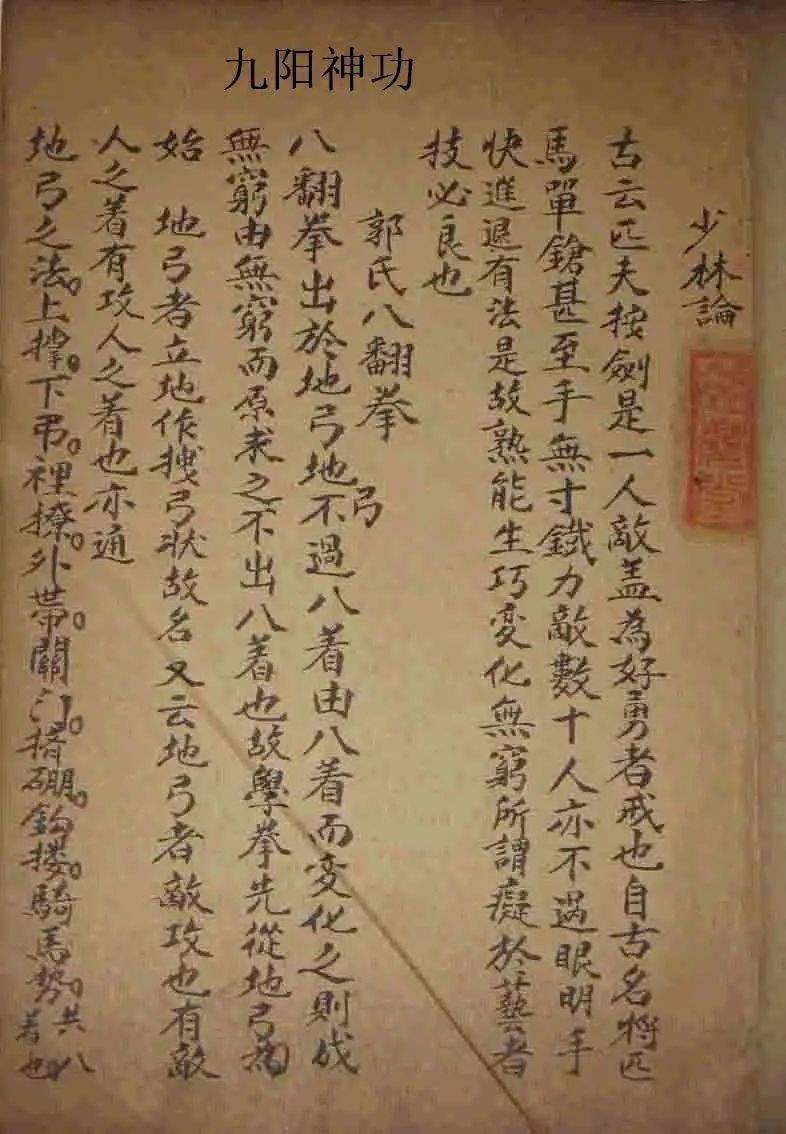 九阳神功
少林論
古云匹夫按劍是一人敵盖為好勇者戒也自古名將匹
馬單鎗甚至手無寸鐵力敵數十人亦不過眼明手
快進退有法是故熟能生巧变化無窮所謂癡於藝者
技必良也
郭氏八翻拳
八翻拳出於地弓地弓不過八着由八着而变化之則成
無窮由無窮而原求之不出八着也故學拳先從地弓為
始 地弓者立地作拽弓狀故名又云地弓者敵攻也有敵
人之着有攻人之着也亦通
地弓之法。上撑。下弔。裡撩。外帶。關门。搭硼。鈎摟。騎馬势。共八着也